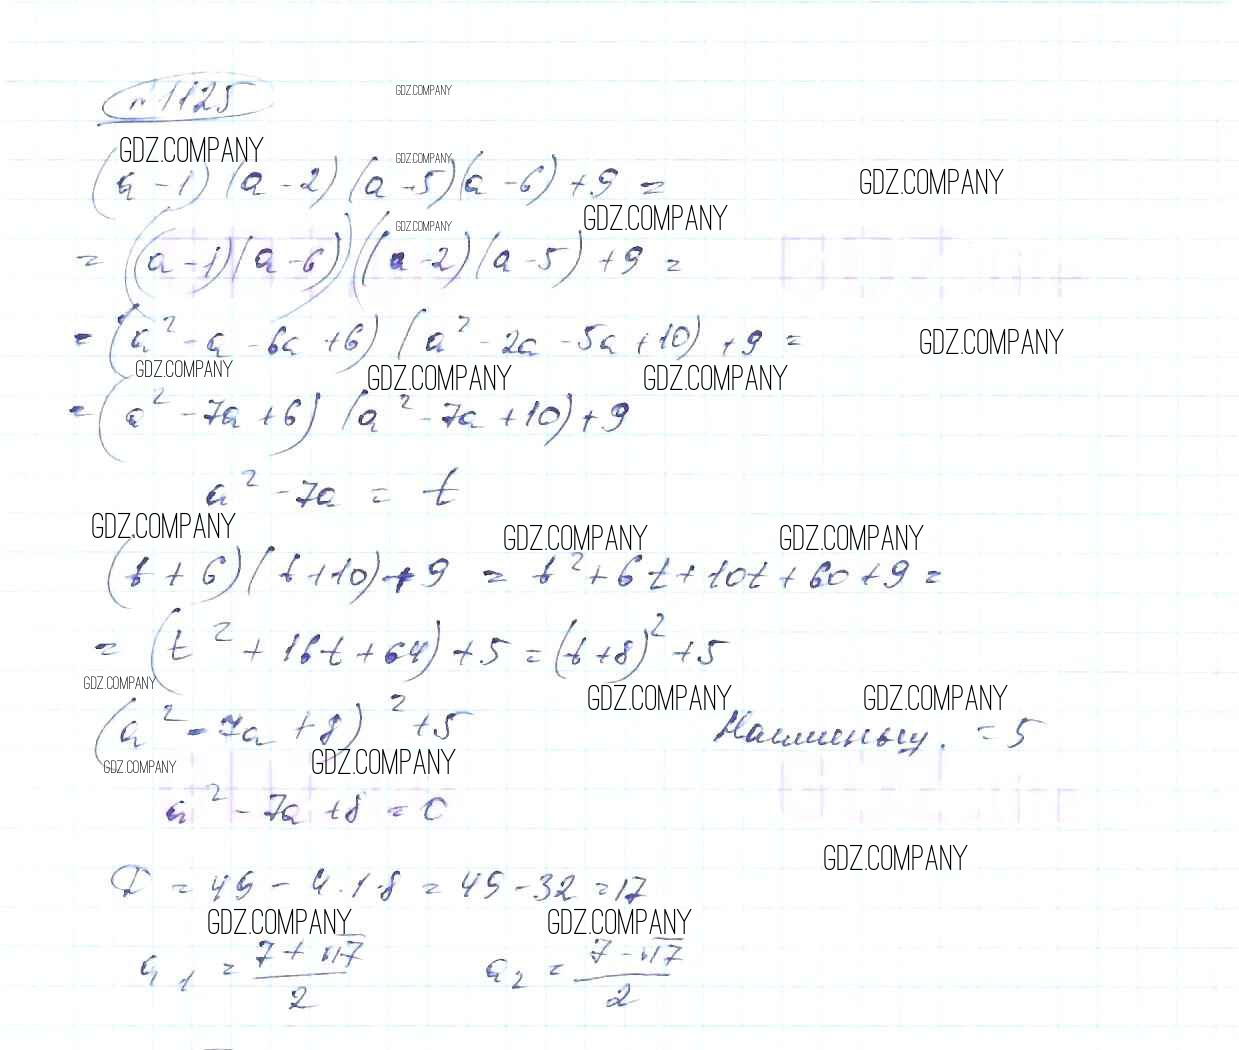 №1125
GDZ.COMPANY
GDZ.COMPANY
GDZ.COMPANY
(a-1)(a-2)(a-5)(a-6)+9=
GDZ.COMPANY
GDZ.COMPANY
GDZ.COMPANY
=((a-1)(a-6))((a-2)(a-5)+9=
=(a²-a-6a+6)(a²-2a-5a+10)+9=
GDZ.COMPANY
GDZ.COMPANY
GDZ.COMPANY
GDZ.COMPANY
=(a²-7a+6)(a²-7a+10)+9
a²-7a=t
GDZ.COMPANY
GDZ.COMPANY
GDZ.COMPANY
(t+6)(t+10)+9=t²+6t+10t+60+9=
=(t²+16t+64)+5=(t+8)²+5
GDZ.COMPANY
GDZ.COMPANY
GDZ.COMPANY
(a²-7a+8)²+5 Наименьш. =5
GDZ.COMPANY
GDZ.COMPANY
a²-7a+8=0
GDZ.COMPANY
D=49-4·1·8=49-32=17
GDZ.COMPANY
GDZ.COMPANY
a₁=(7+√17)/2 a₂=(7-√17)/2